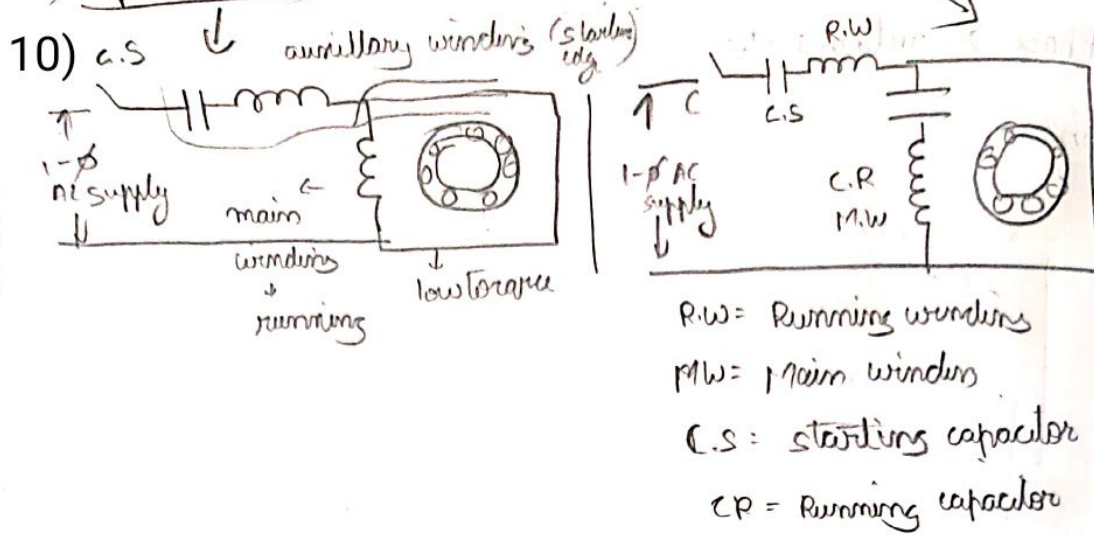 10) C.S
auxillary winding (starting
wdg)
1-ϕ
AC supply
main
winding
running
low Torque
R.W
C
C.S
1-ϕ AC
supply
C.R
M.W
R.W = Running winding
MW = Main winding
C.S = starting capacitor
CR = Running capacitor